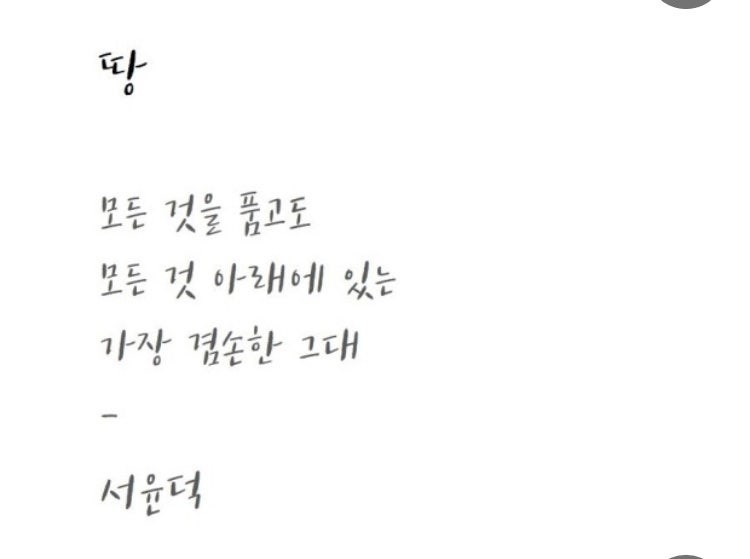 땅
모든 것을 품고도
모든 것 아래에 있는
가장 겸손한 그대
-
서윤덕